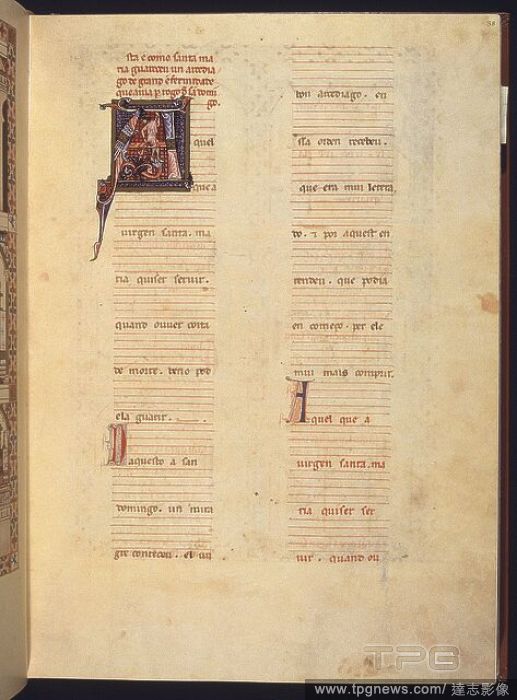 38
sta e como santa ma
ria guareceu un arcedia
go de grand enfermidade
que avia p rogo d sã domi
go.
quel
que a
virgen santa. ma
ria quiser servir.
quand ouver coita
de morte. beno pod
ela guarir.
aquesto a san
domingo. un mira
gre conteceu. el un
bon arcediago. en
ssa orden recebeu.
que era mui letera
do. ⁊ por aquest en
tendeu. que podia
en começo. per ele
mui mais comprir.
Aquel que a
virgen santa. ma
ria quiser ser
vir. quand ou
TPG
www.tpgnews.com/達志影像